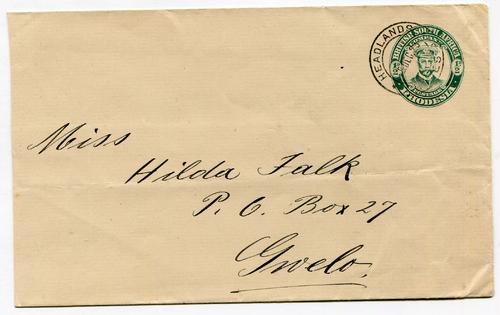 HEADLANDS
BRITISH SOUTH AFRICA
COMPANY
POSTAGE
RHODESIA
Miss
Hilda Falk
P. O. Box 27
Gwelo.